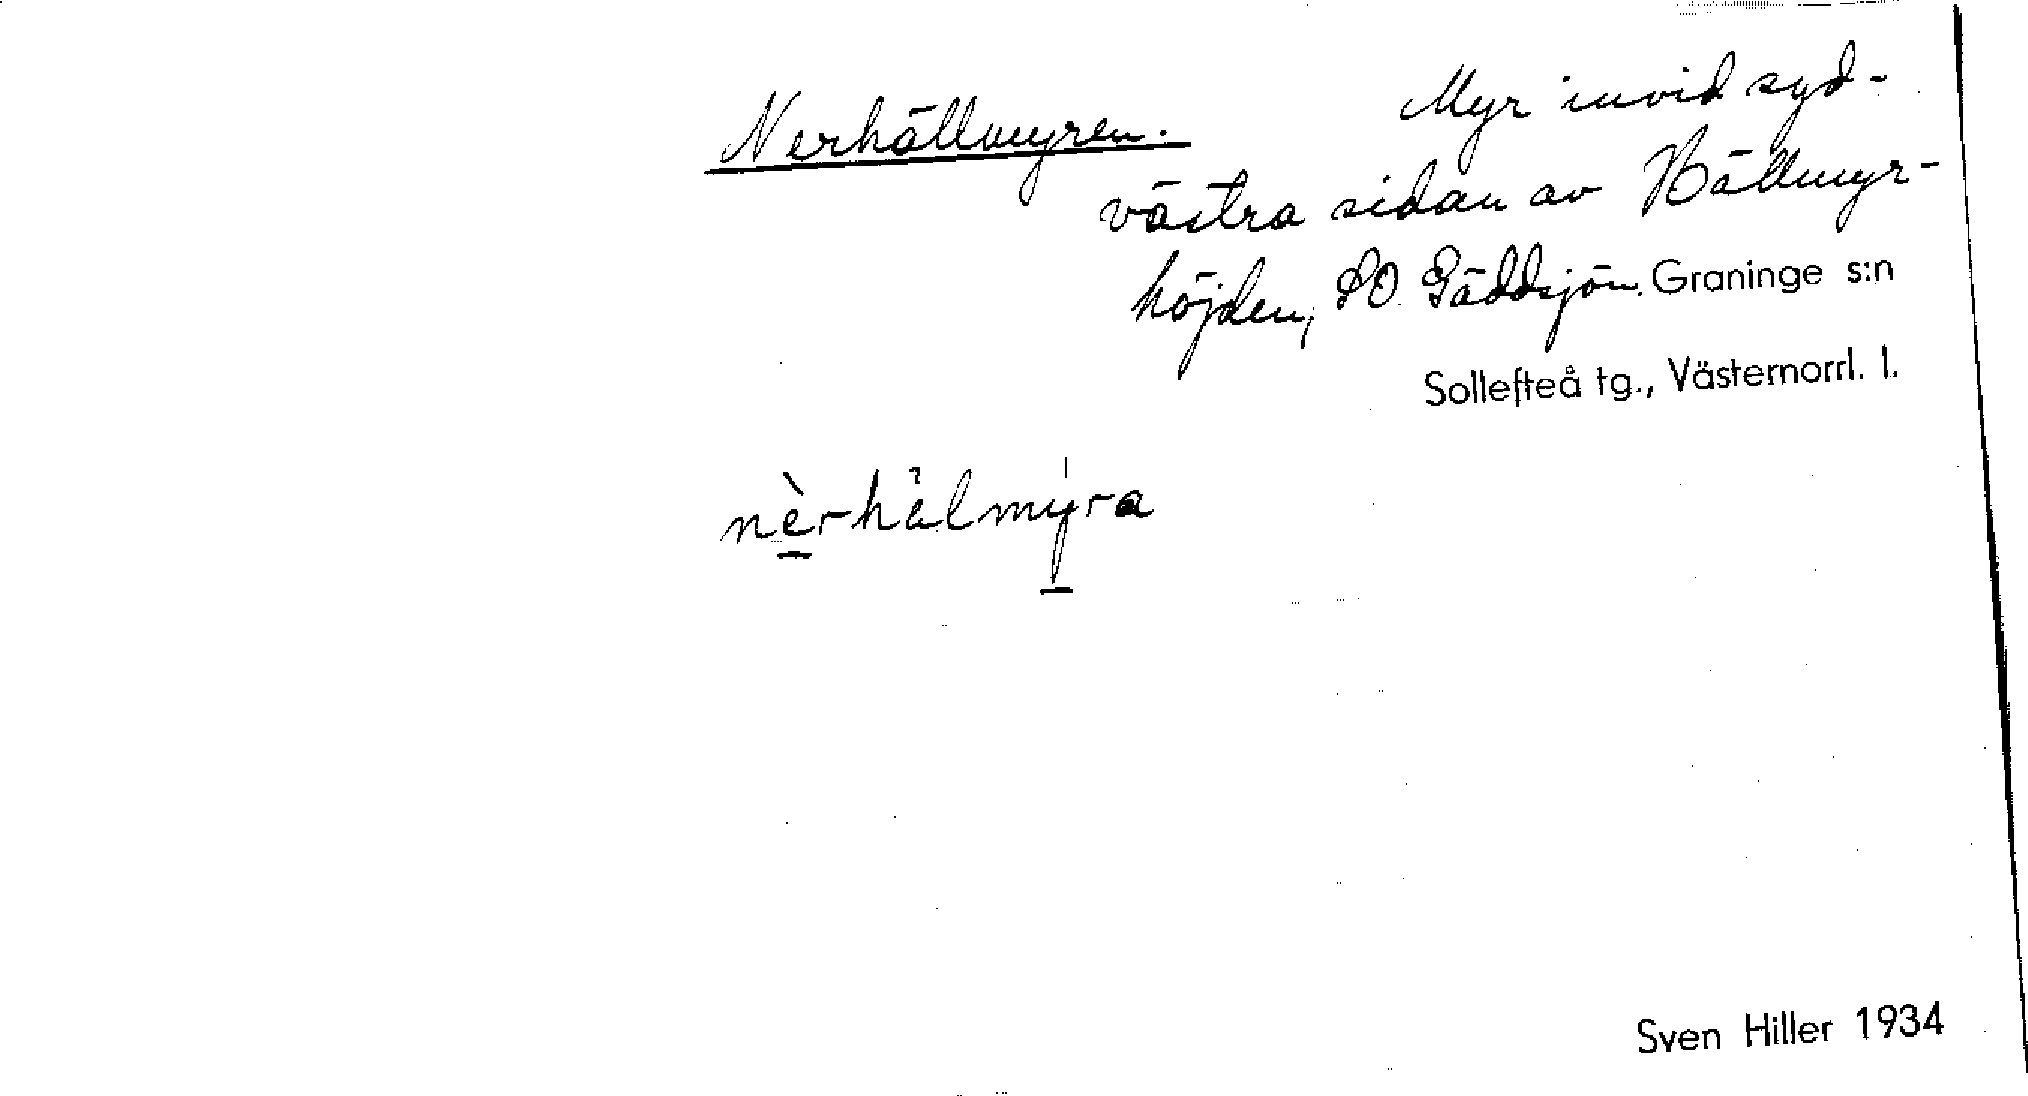 Nerhällmyren.
Myr invid syd-
västra sidan av Hällmyr-
höjden, SO Gäddsjön. Graninge s:n
Sollefteå tg., Västernorrl. l.
nèrhälmyra
Sven Hiller 1934